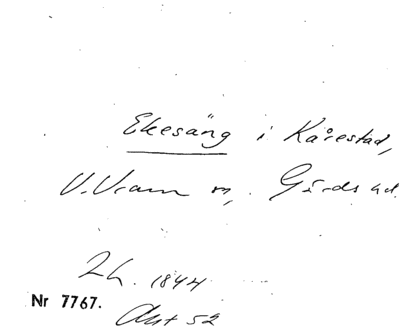 Ekesäng i Kårestad,
V. Vram sn, Gärds hd.
Lh. 1844
Nr 7767.
Akt 52